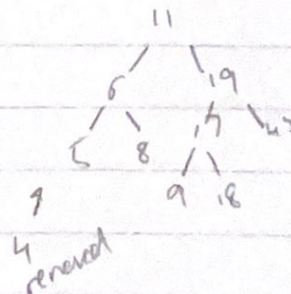 11
6 19
5 8 17 43
9 18
4
removed